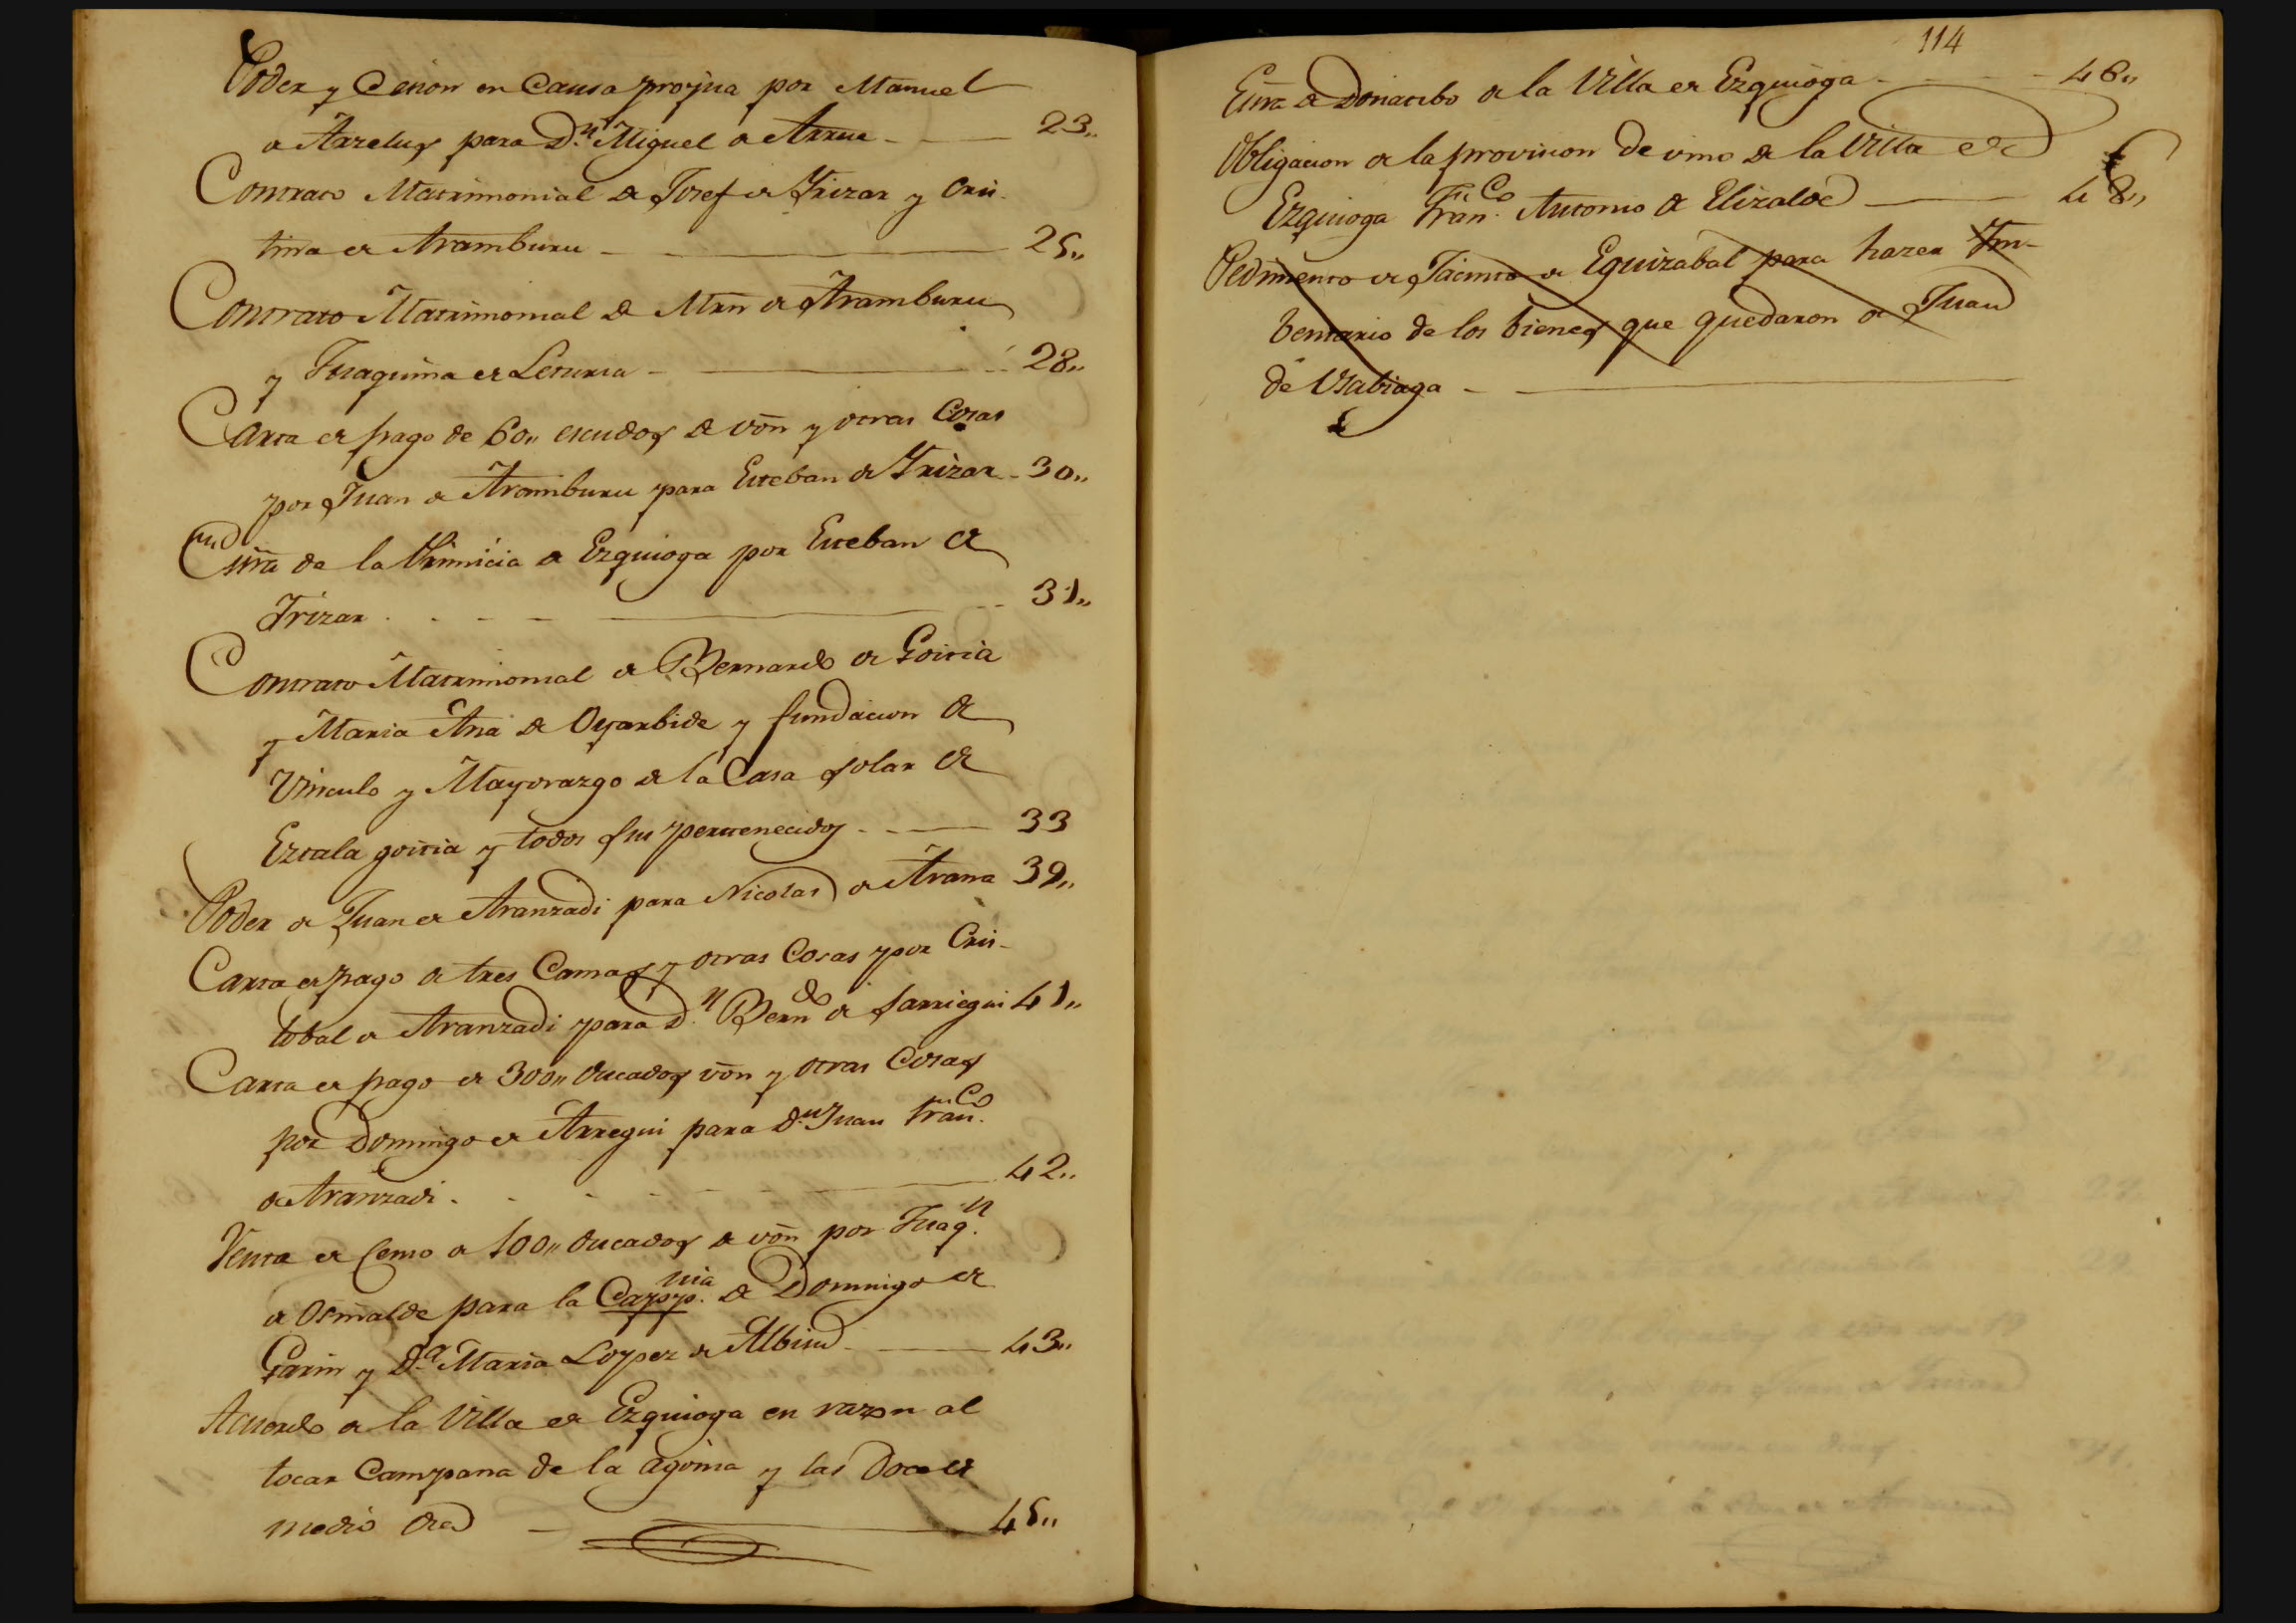 Poder y Cesion en Causa propia por Manuel
de Arzelus para D.n Miguel de Arrue - 23,,
Contrato Matrimonial de Josef de Yrizar y Cris-
tina de Aramburu - 25,,
Contrato Matrimonial de Mrn de Aramburu
y Juaquina de Leturia - 28,,
Carta de pago de 60,, escudos de von y otras Cosas
por Juan de Aramburu para Esteban de Yrizar - 30,,
de la Primicia de Ezquioga por Esteban de
Yrizar - 31,,
Contrato Matrimonial de Bernardo de Goitia
y Maria Ana de Oyarbide y fundacion de
Vinculo y Mayorazgo de la Casa solar de
Eztala goitia y todos sus pertenecidos - 33
Poder de Juan de Aranzadi para Nicolas de Arana 39,,
Carta de pago de tres Camas y otras Cosas por Cris-
tobal de Aranzadi para D.n Bern.do de Sarriegui 41,,
Carta de pago de 300,, ducados von y otras Cosas
por Domingo de Arregui para D.n Juan Fran.co
de Aranzadi - 42,,
Venta de Censo de 100,, ducados de von por Juaq.n
de Osinalde para la Capp.nia de Domingo de
Garin y D.a Maria Lopez de Albisu - 43,,
Acuerdo de la Villa de Ezquioga en razon al
tocar Campana de la agonia y las Doce de
medio dia - 45,,
114
Esura de Donatibo de la Villa de Ezquioga - 46,,
Obligacion de la provision de vino de la Villa de
Ezquioga Fran.co Antonio de Elizalde - 48,,
Pedimento de Jacinto de Eguizabal para hazer Ym-
bentario de los bienes que quedaron de Juan
de Usabiaga -